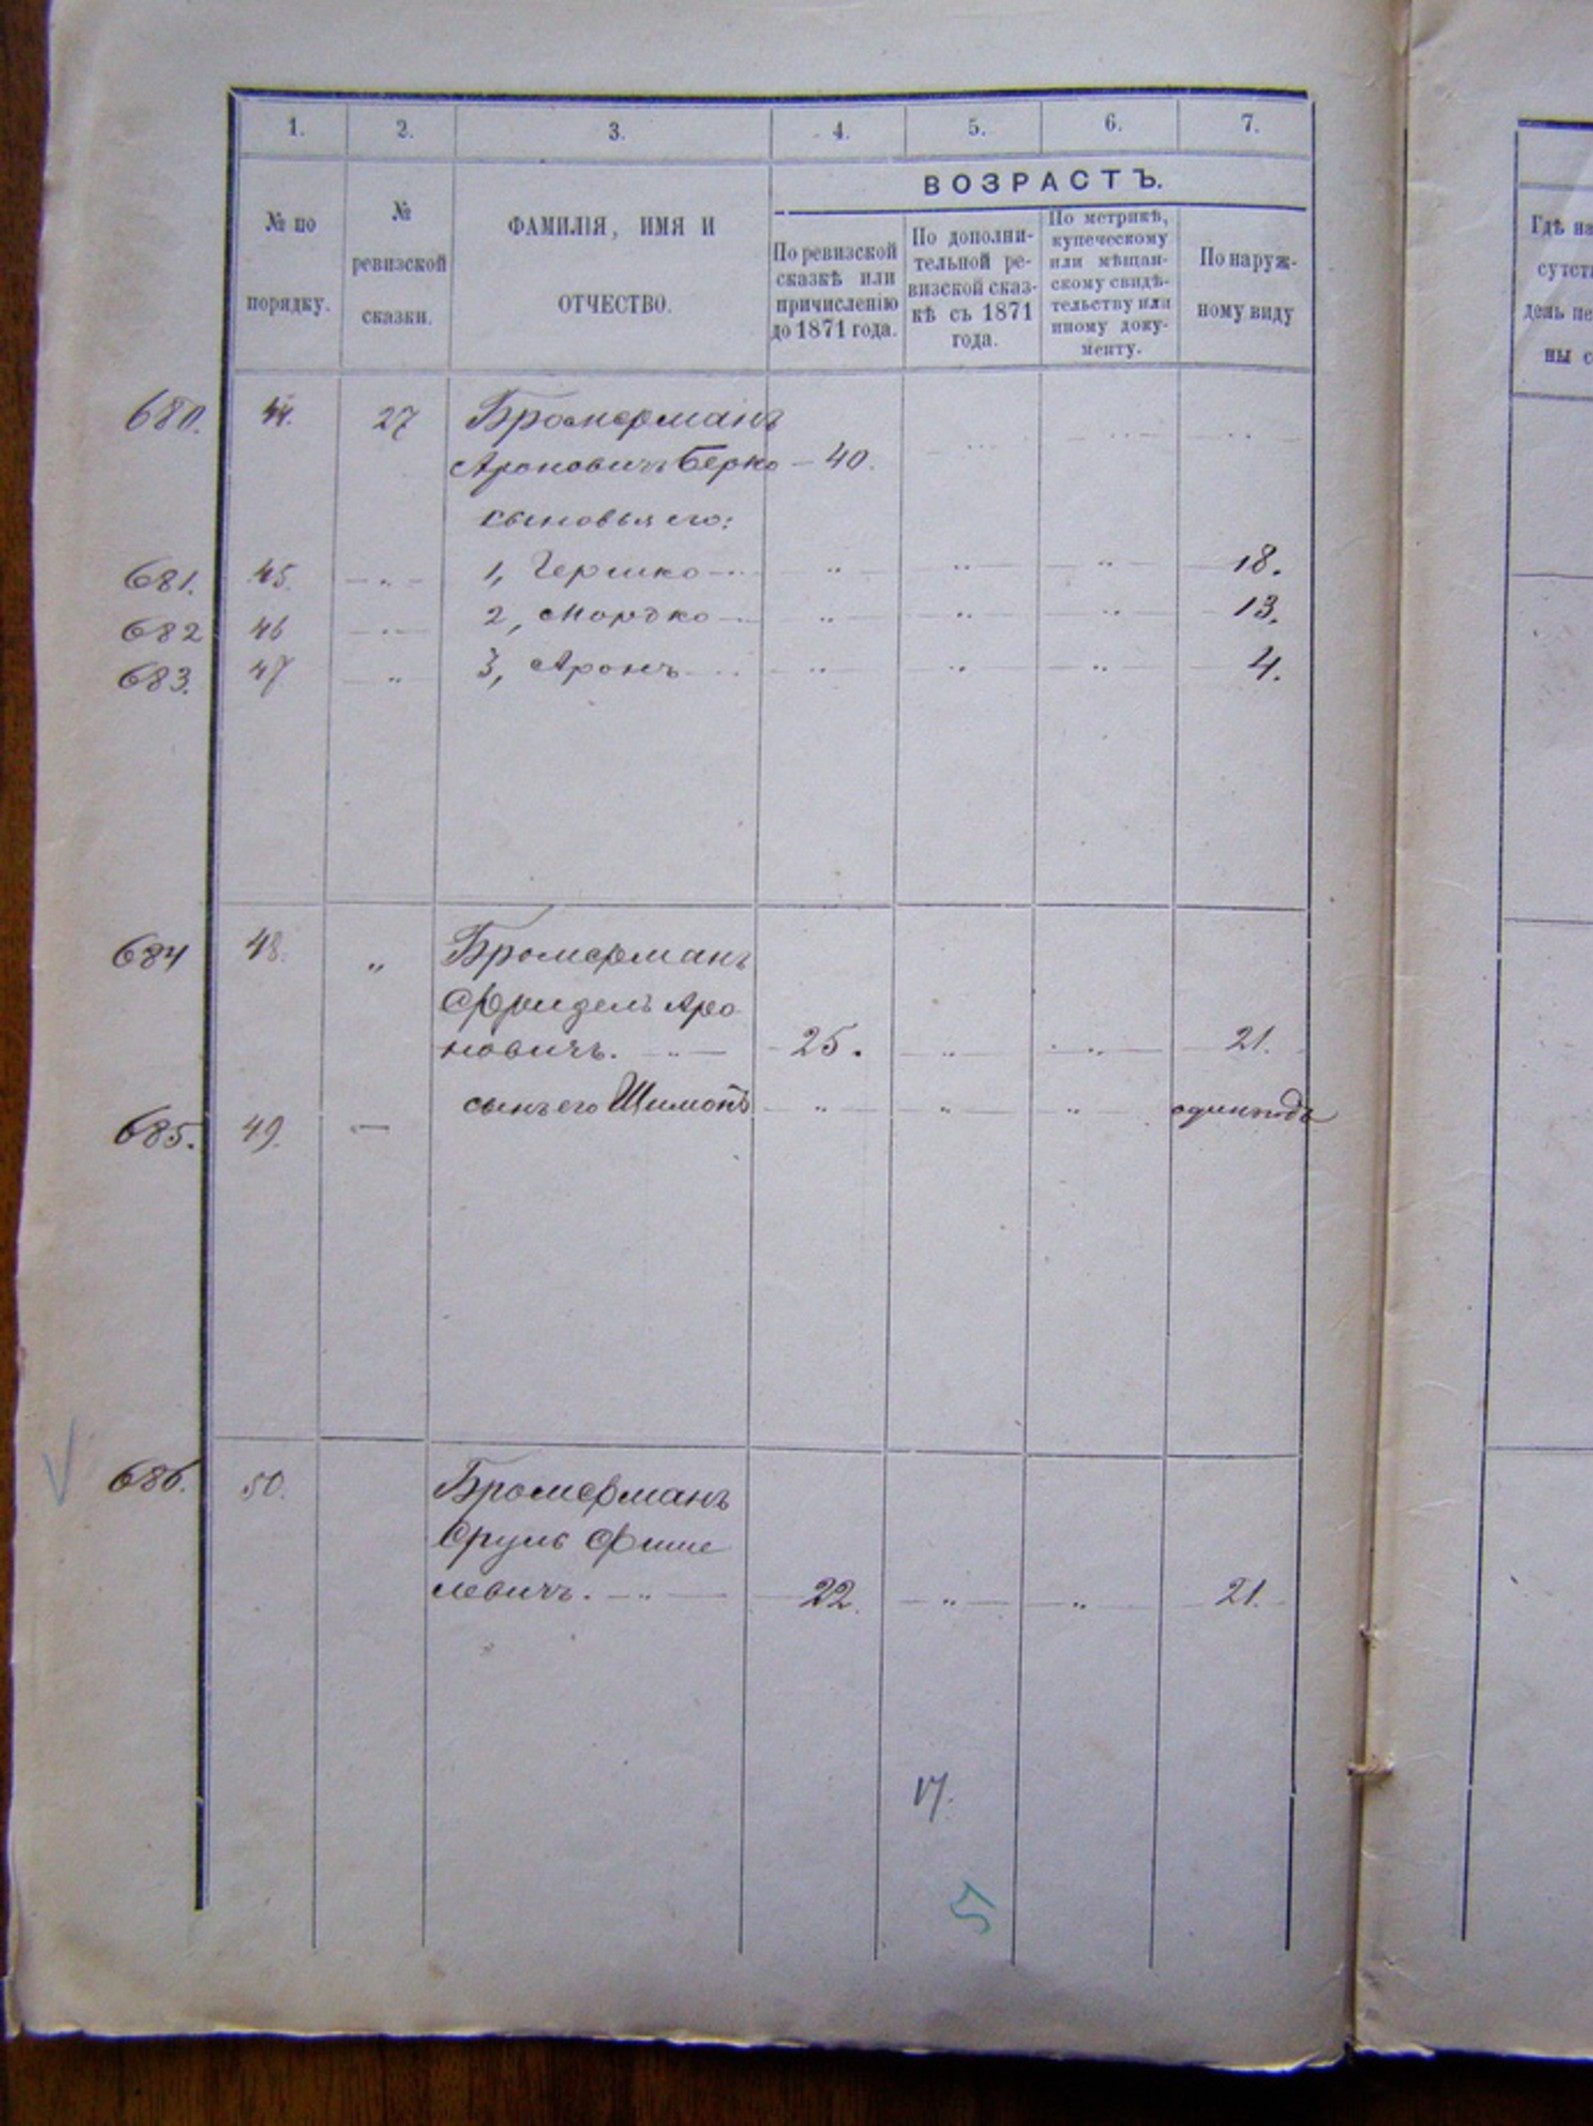 1. 2. 3. 4. 5. 6. 7.
ВОЗРАСТЪ.
№ по
порядку.
№
ревизской
сказки.
ФАМИЛІЯ, ИМЯ И
ОТЧЕСТВО.
По ревизской
сказкѣ или
причисленію
до 1871 года.
По дополни-
тельной ре-
визской сказ-
кѣ съ 1871
года.
По метрикѣ,
купеческому
или мѣщан-
скому свидѣ-
тельству или
иному доку-
менту.
По наруж-
ному виду
680. 44. 27 Бромерманъ
Ароновичъ Берко – 40.
сыновья его:
681. 45. – „ – 1, Гершко „ „ „ 18.
682 46 – „ – 2, Мордко „ „ „ 13.
683. 47 – „ 3, Аронъ „ „ „ 4.
684 48. „ Бромерманъ
Фридель Аро
новичъ. – „ – 25. „ „ 21.
685. 49. – сынъ его Шимонъ „ „ „ одинъ годъ
686. 50. Бромерманъ
Сруль Фише
левичъ. – „ – 22. „ „ 21.
17.
57
Гдѣ на
сутст
день пе
ны с